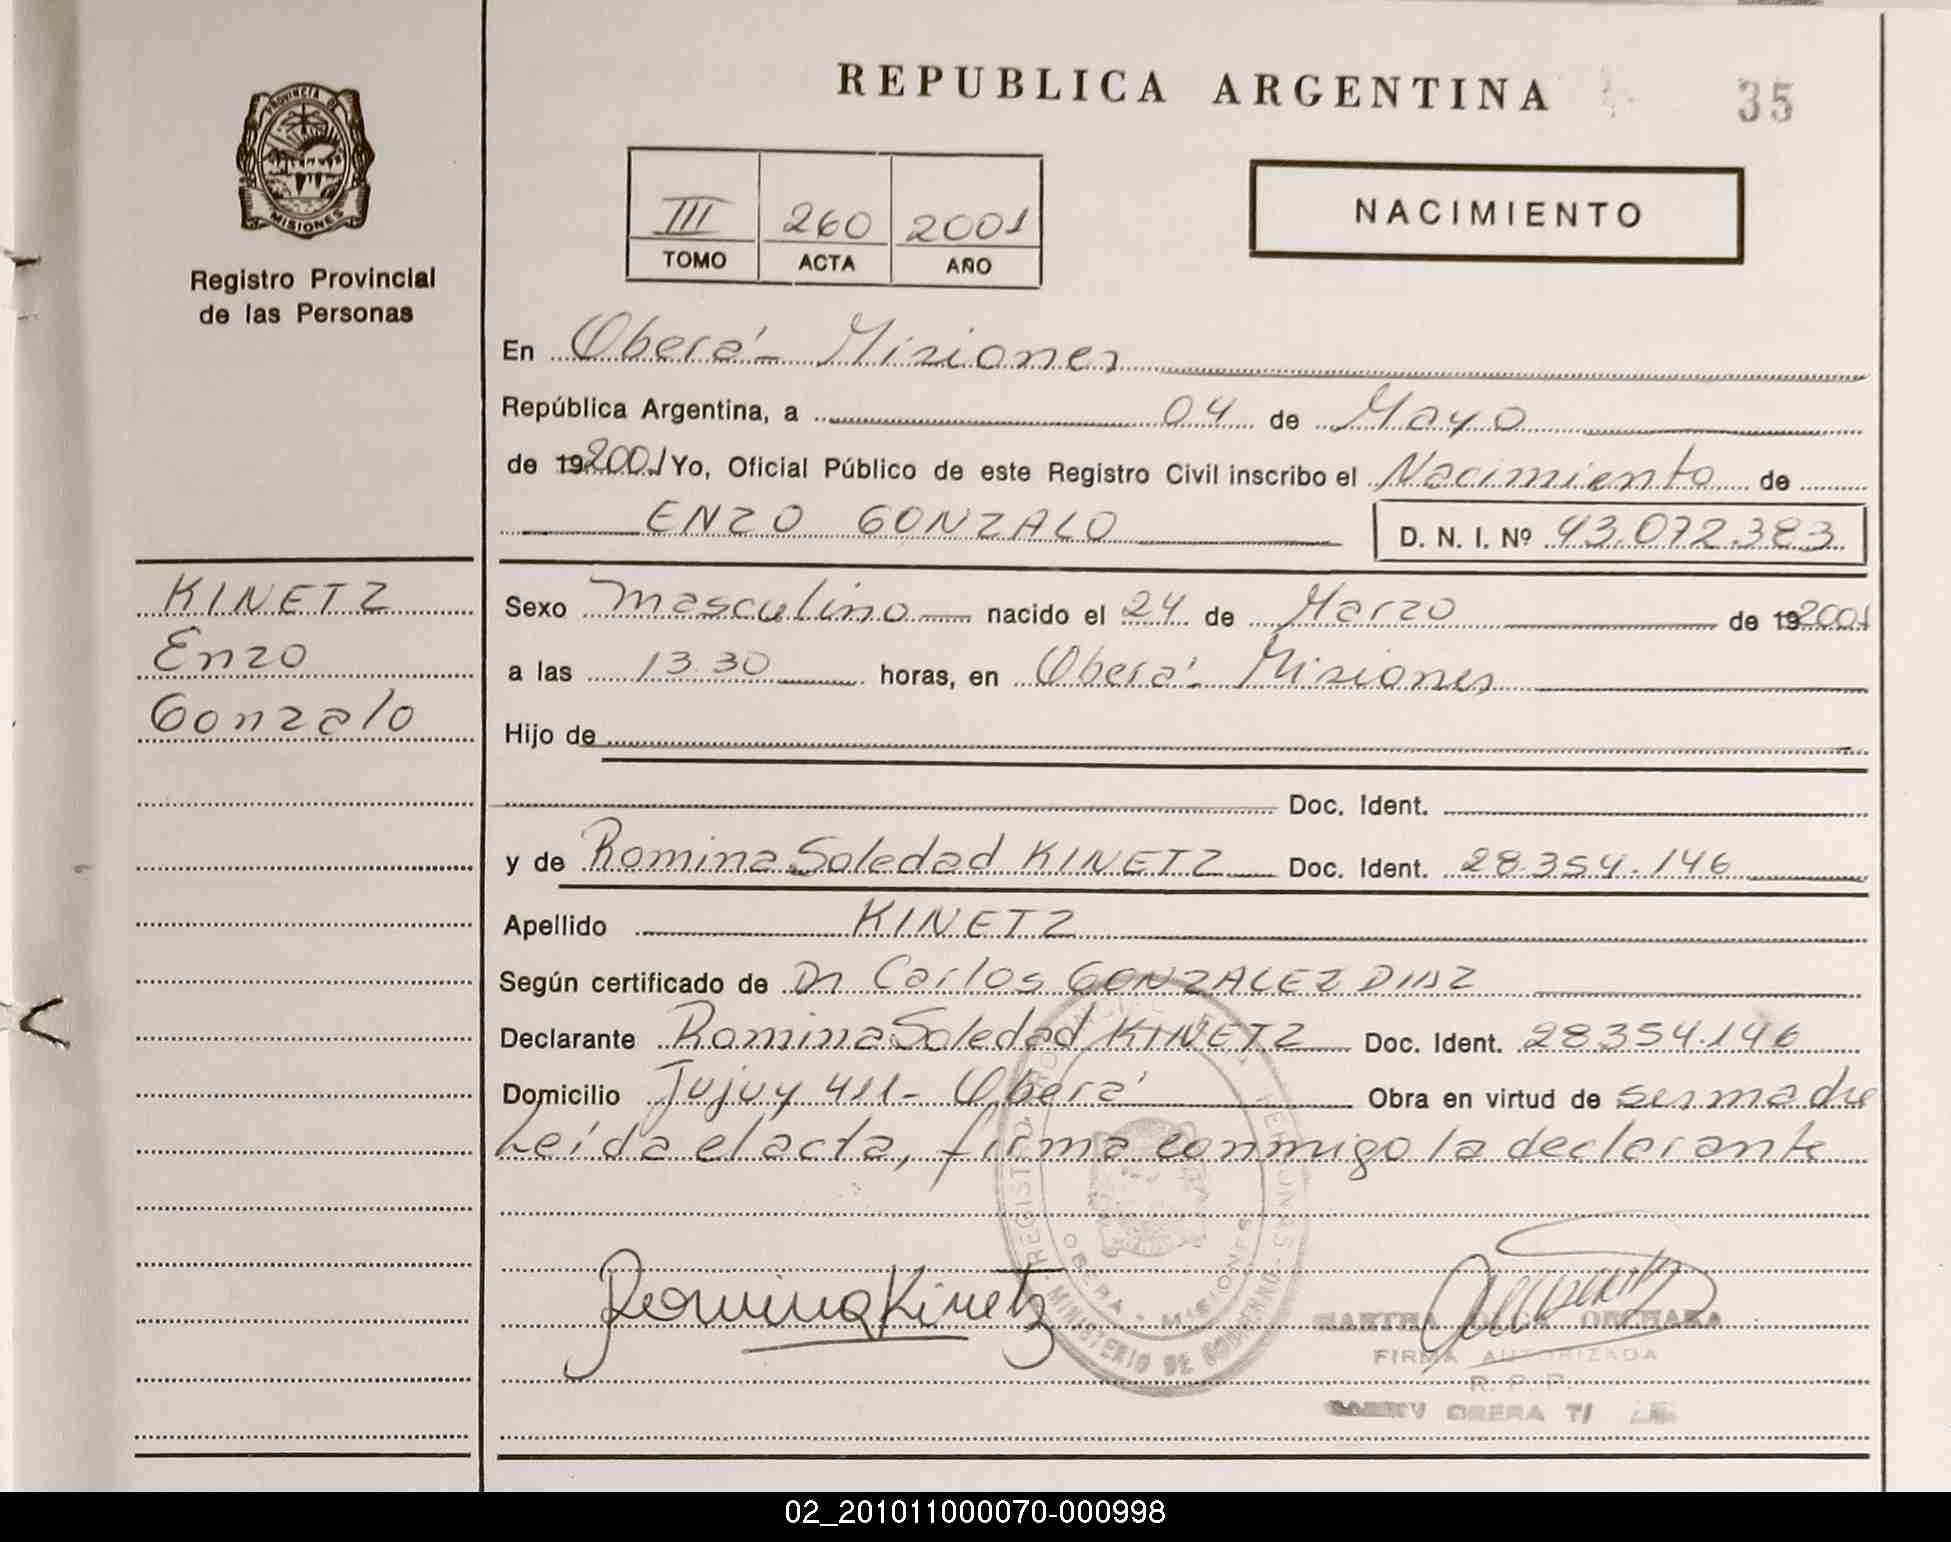 REPUBLICA ARGENTINA
35
PROVINCIA D MISIONES
Registro Provincial
de las Personas
III 260 2001
TOMO ACTA AÑO
NACIMIENTO
En Oberá - Misiones
República Argentina, a 04 de Mayo
de 19 2001 Yo, Oficial Público de este Registro Civil inscribo el Nacimiento de
ENZO GONZALO D. N. I. Nº 43.072.383
KINETZ
Enzo
Gonzalo
Sexo masculino nacido el 24 de Marzo de 19 2001
a las 13.30 horas, en Oberá - Misiones
Hijo de
Doc. Ident.
y de Romina Soledad KINETZ Doc. Ident. 28.354.146
Apellido KINETZ
Según certificado de Dr Carlos GONZALEZ DIAZ
Declarante Romina Soledad KINETZ Doc. Ident. 28354.146
Domicilio Jujuy 411 - Oberá Obra en virtud de ser madre
Leída el acta, firma conmigo la declarante
Romina Kinetz
REGISTRO PERSONAS
OBERA - MISIONES
MINISTERIO DE GOBIERNO
MARTHA
FIRMA AUTORIZADA
R. P. P.
OBERA
02_201011000070-000998